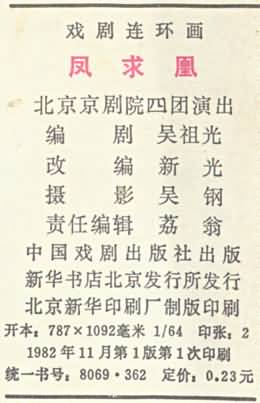 戏剧连环画
凤求凰
北京京剧院四团演出
编 剧 吴祖光
改 编 新光
摄 影 吴钢
责任编辑 荔翁
中国戏剧出版社出版
新华书店北京发行所发行
北京新华印刷厂制版印刷
开本：787×1092毫米 1/64 印张：2
1982年11月第1版第1次印刷
统一书号：8069·362 定价：0.23元